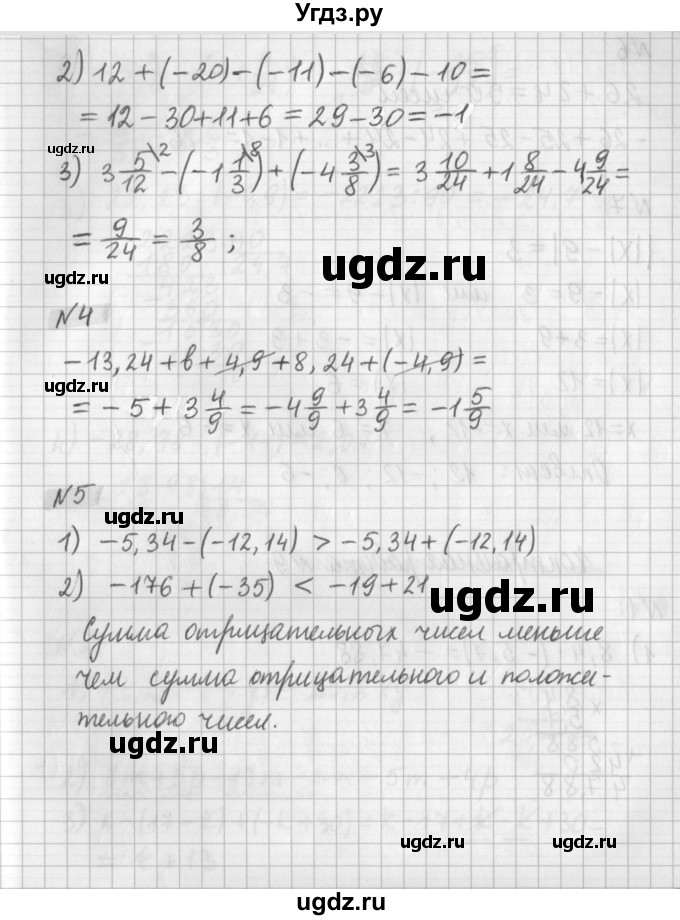 Угдз.ру
2) 12 + (−20) − (−11) − (−6) − 10 =
= 12 − 30 + 11 + 6 = 29 − 30 = −1
3) 3 5/12 \2 − (−1 1/3 \8) + (−4 3/8 \3) = 3 10/24 + 1 8/24 − 4 9/24 =
= 9/24 = 3/8 ;
ugdz.ru
ugdz.ru
№4
−13,24 + в + 4,9 + 8,24 + (−4,9) =
ugdz.ru
= −5 + 3 4/9 = −4 9/9 + 3 4/9 = −1 5/9
№5
ugdz.ru
1) −5,34 − (−12,14) > −5,34 + (−12,14)
2) −176 + (−35) < −19 + 21
ugdz.ru
Сумма отрицательных чисел меньше
чем сумма отрицательного и положи-
тельного чисел.
ugdz.ru
ugdz.ru
ugdz.ru
ugdz.ru